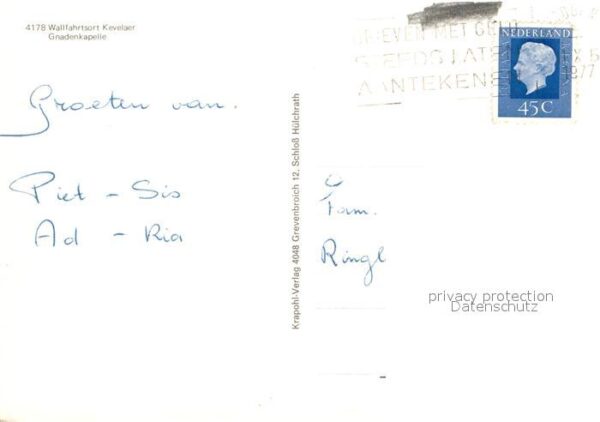 4178 Wallfahrtsort Kevelaer
Gnadenkapelle
Groeten van.
Piet - Sis
Ad - Ria
Krapohl-Verlag 4048 Grevenbroich 12, Schloß Hülchrath
BRIEVEN MET GELD
STEEDS LATEN
AANTEKENEN
1977
NEDERLAND
45C
Fam.
Ringl
privacy protection
Datenschutz